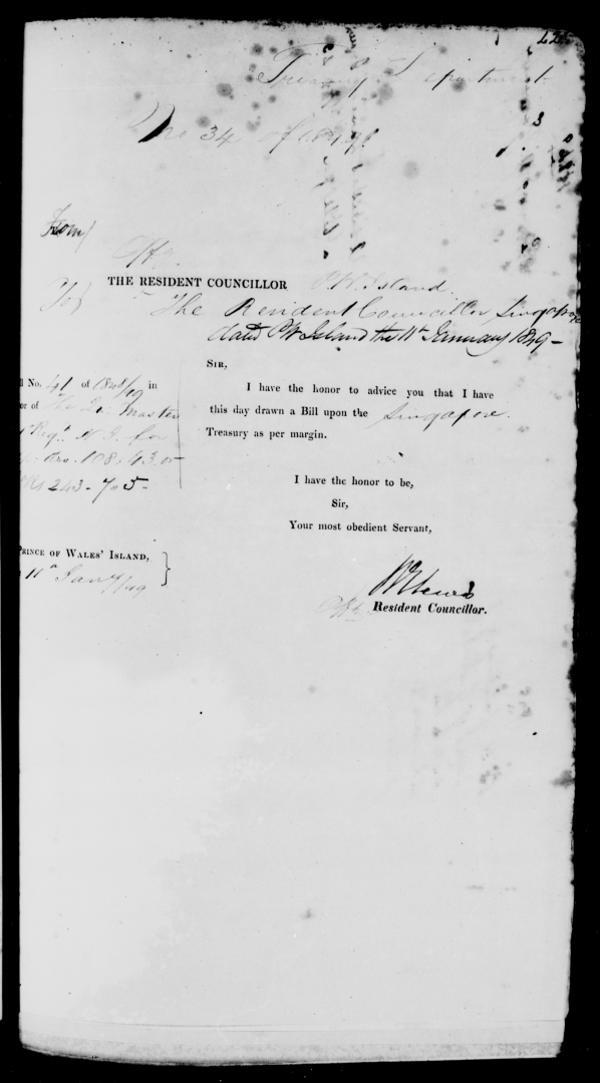 Treasury Department
No 34 of 1849
From
Offg.
THE RESIDENT COUNCILLOR P.W. Island.
To
The Resident Councillor, Singapore
dated P W Island the 11th January 1849 -
SIR,
I have the honor to advice you that I have
this day drawn a Bill upon the Singapore.
Treasury as per margin.
l No. 41 of 1848/49 in
or of The Qr. Master
Regt. N. I. for
108. 43. or
243 - 7 - 5 -
I have the honor to be,
Sir,
Your most obedient Servant,
PRINCE OF WALES' ISLAND,
11th Jany/49
Offg. Resident Councillor.